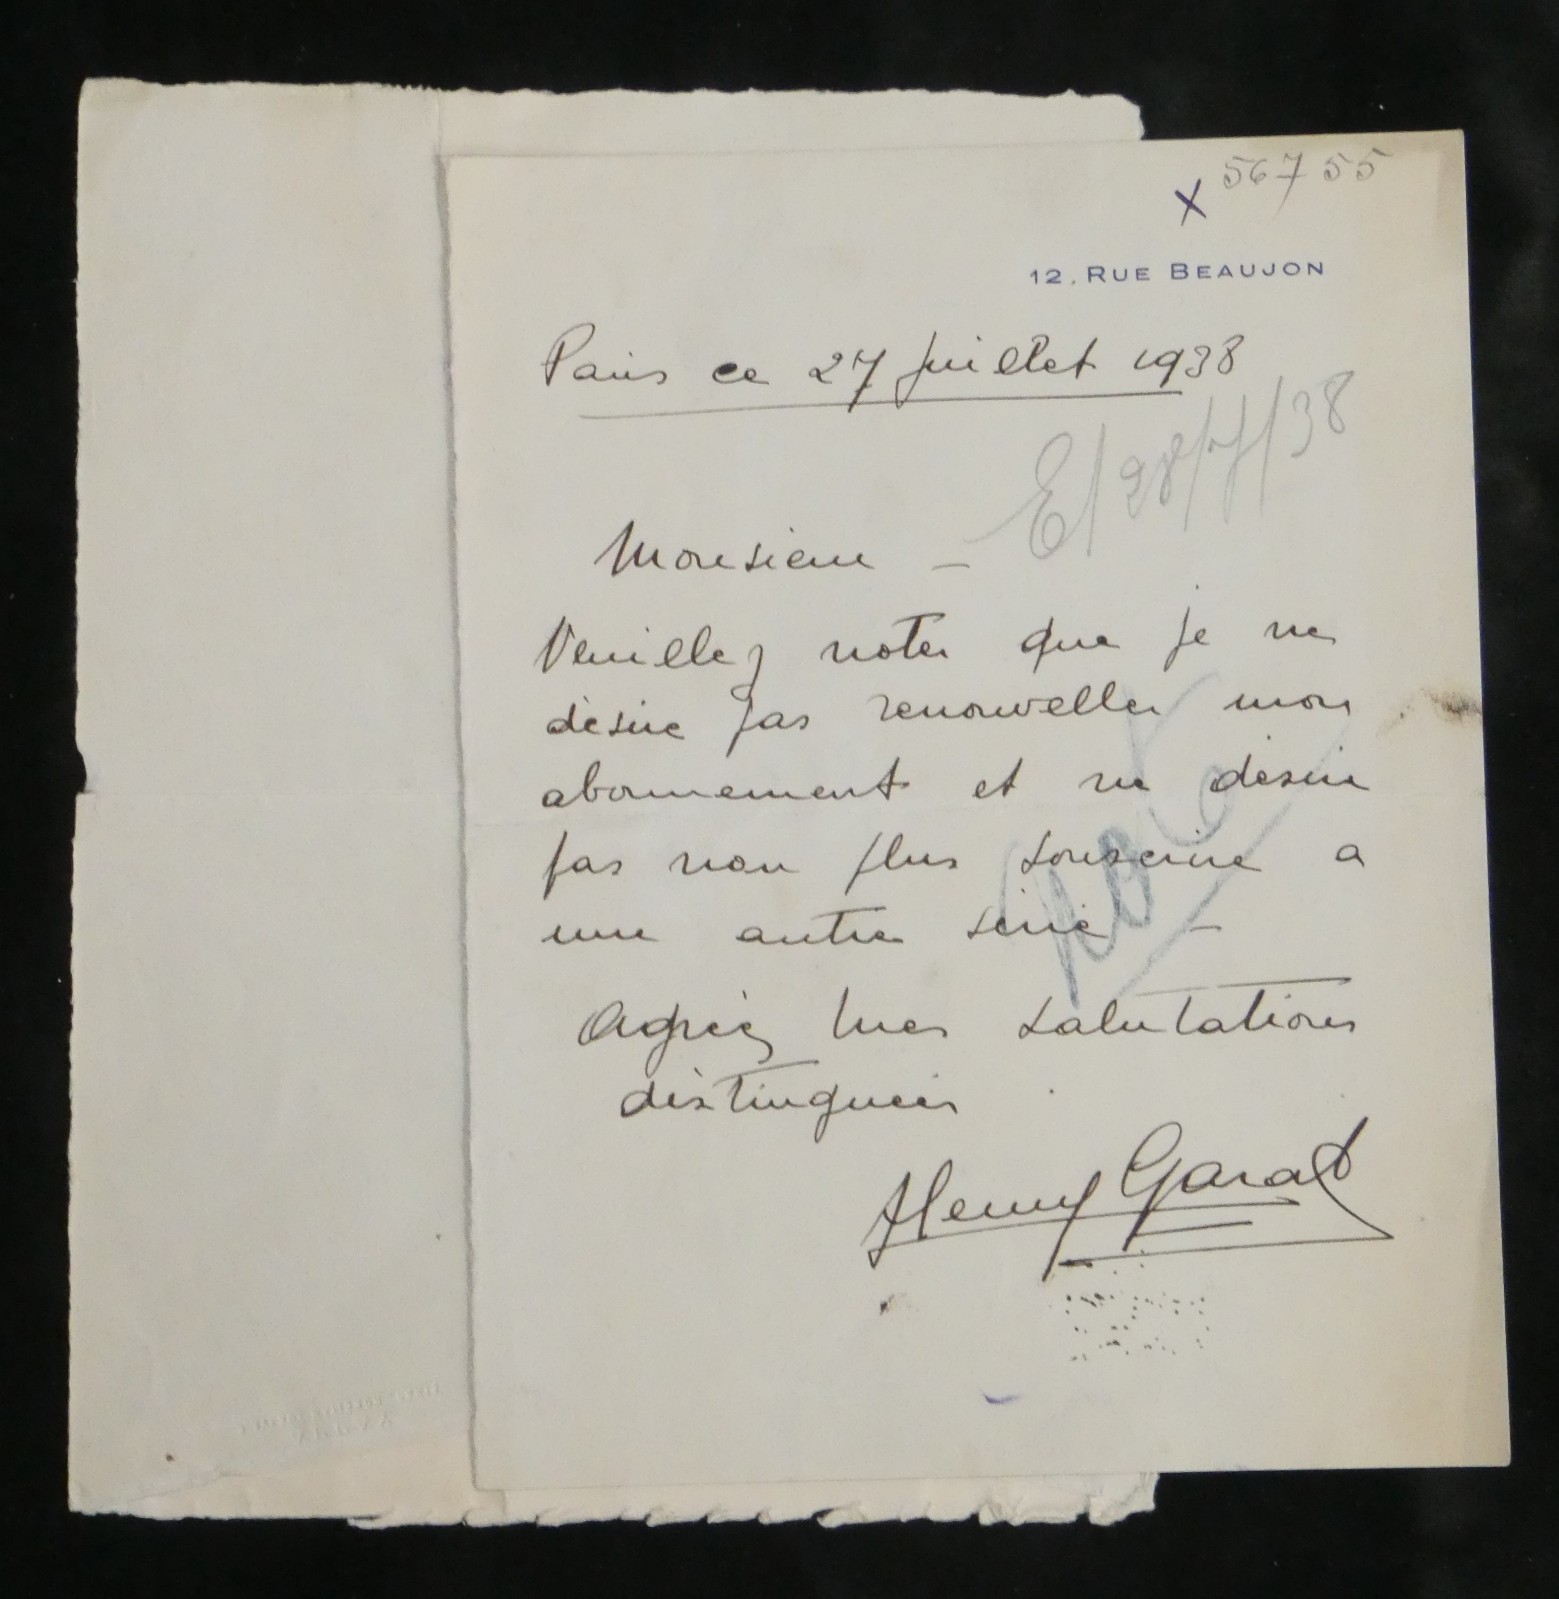 56755
x
12, RUE BEAUJON
Paris ce 27 juillet 1938
E/28/7/38
Monsieur –
Veuillez noter que je ne
désire pas renouveller mon
abonnement et ne désire
pas non plus souscrire a
une autre série –
Agréez mes salutations
distinguées
Henry Garat